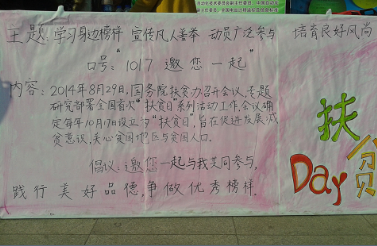 主题：学习身边榜样 宣传凡人善举 动员广泛参与 培育良好风尚
口号："1017 邀您一起"
内容：2014年8月29日，国务院扶贫办召开会议，专题
研究部署全国首次"扶贫日"系列活动工作，会议确
定每年10月17日设立为"扶贫日"，旨在促进发展，减
贫意识，关心贫困地区与贫困人口。
倡议：邀您一起与我共同参与，
践行美好品德，争做优秀榜样。
扶
贫
Day